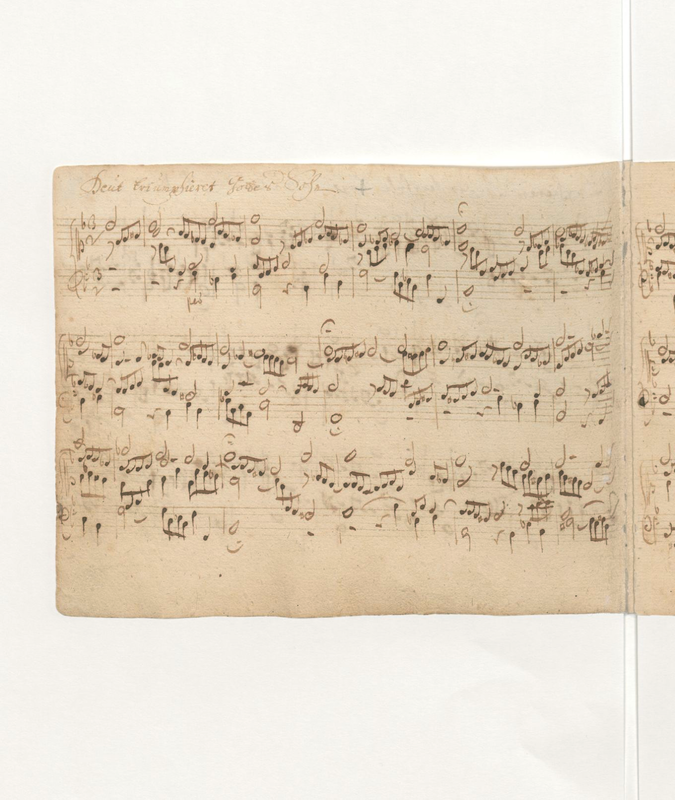 Heut triumphiret Gottes Sohn
ped